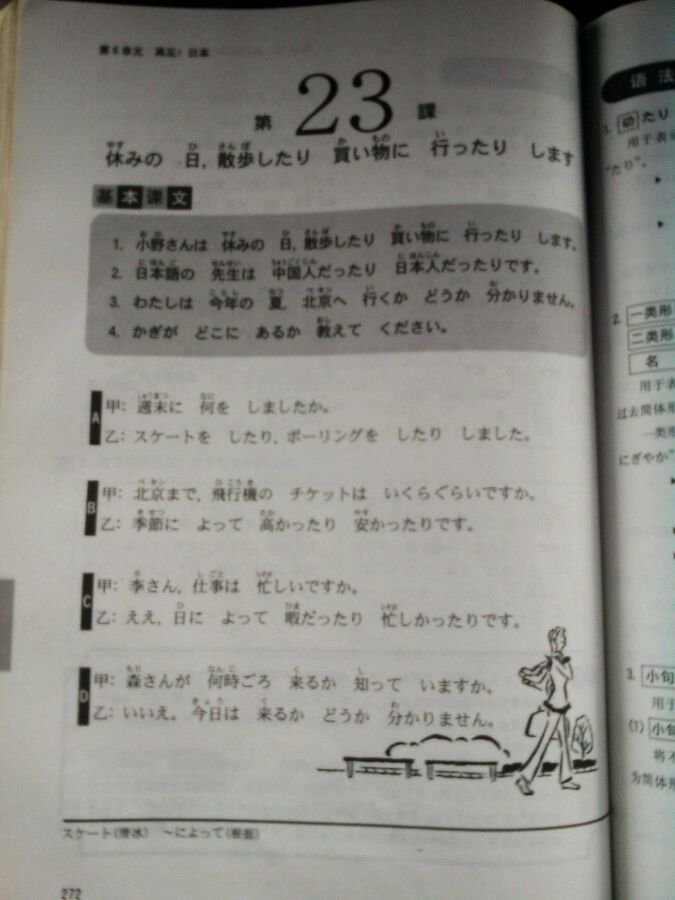 第6单元 再见,日本
第 23 課
休みの 日,散歩したり 買い物に 行ったり します
基本课文
1. 小野さんは 休みの 日,散歩したり 買い物に 行ったり します。
2. 日本語の 先生は 中国人だったり 日本人だったりです。
3. わたしは 今年の 夏, 北京へ 行くか どうか 分かりません。
4. かぎが どこに あるか 教えて ください。
A
甲: 週末に 何を しましたか。
乙: スケートを したり,ボーリングを したり しました。
B
甲: 北京まで,飛行機の チケットは いくらぐらいですか。
乙: 季節に よって 高かったり 安かったりです。
C
甲: 李さん,仕事は 忙しいですか。
乙: ええ,日に よって 暇だったり 忙しかったりです。
D
甲: 森さんが 何時ごろ 来るか 知って いますか。
乙: いいえ。今日は 来るか どうか 分かりません。
スケート(滑冰) ～によって(根据)
272
语 法
1. 动たり
用于表示
"たり"。
2. 一类形
二类形
名
用于表
过去简体形
一类形
にぎやか"
3. 小句
用于
(1) 小句
将不
为简体形